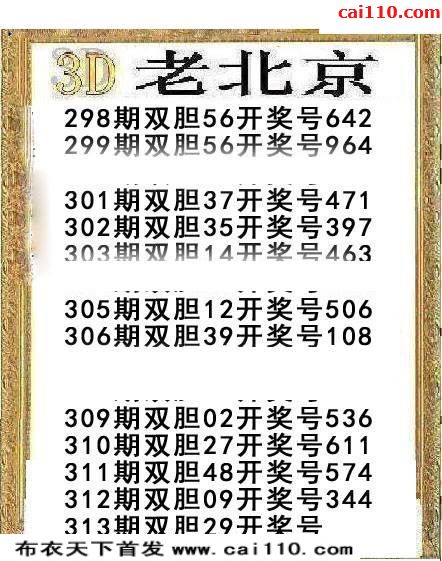 cai110.com
3D 老北京
298期双胆56开奖号642
299期双胆56开奖号964
301期双胆37开奖号471
302期双胆35开奖号397
303期双胆14开奖号463
305期双胆12开奖号506
306期双胆39开奖号108
309期双胆02开奖号536
310期双胆27开奖号611
311期双胆48开奖号574
312期双胆09开奖号344
313期双胆29开奖号
布衣天下首发 www.cai110.com